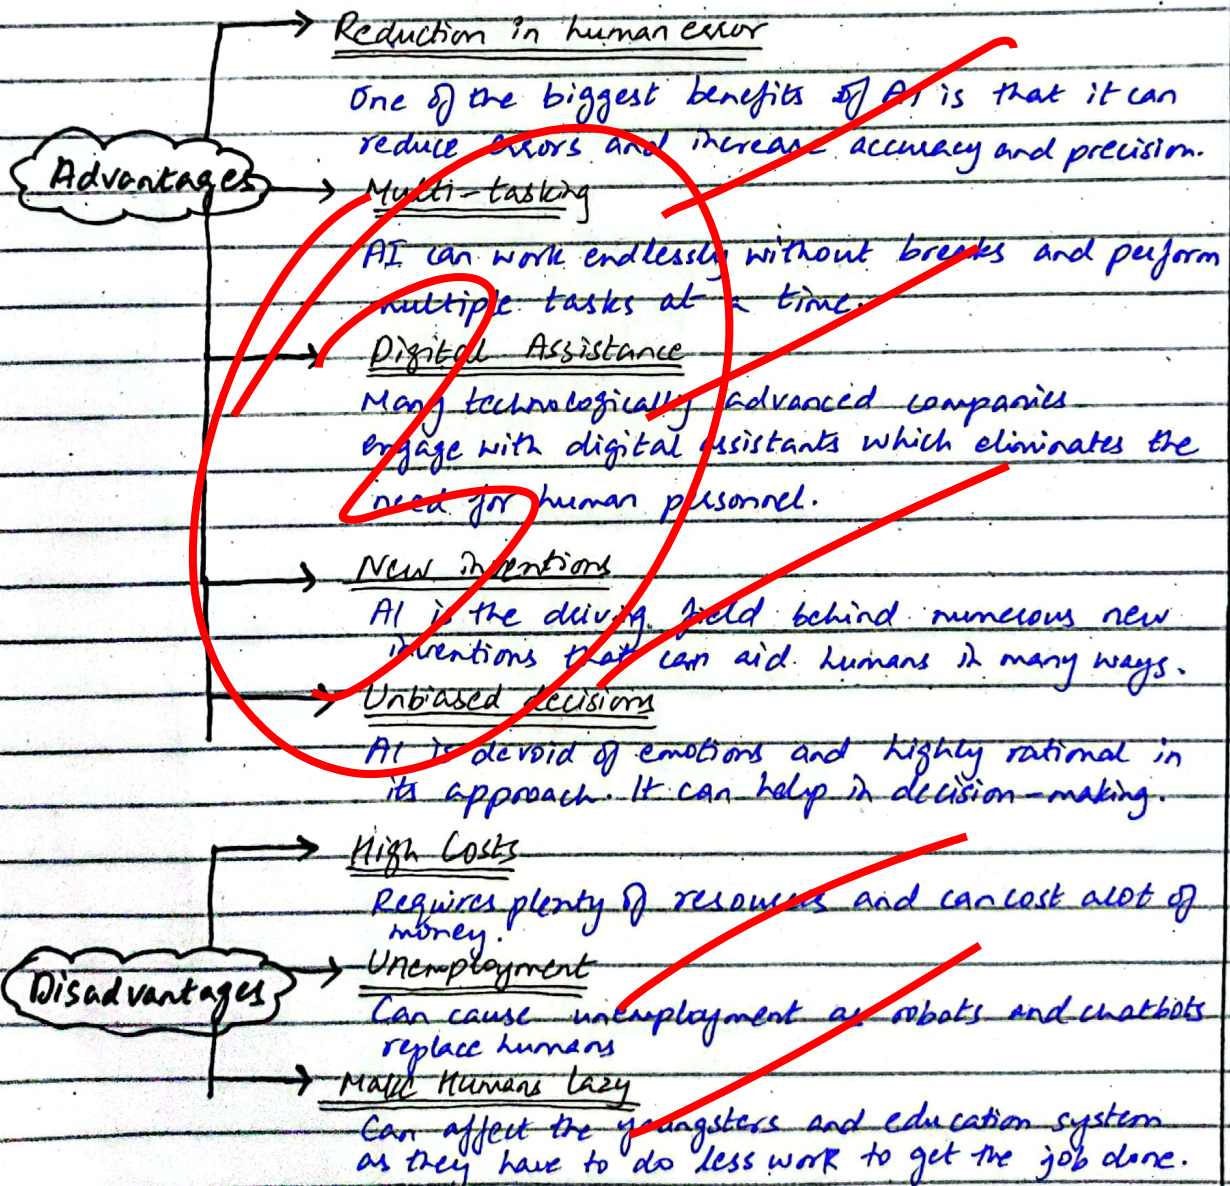 Reduction in human error
One of the biggest benefits of AI is that it can
reduce errors and increase accuracy and precision.
Advantages
Multi-tasking
AI can work endlessly without breaks and perform
multiple tasks at a time.
Digital Assistance
Many technologically advanced companies
engage with digital assistants which eliminates the
need for human personnel.
New inventions
AI is the driving field behind numerous new
inventions that can aid humans in many ways.
Unbiased decisions
AI is devoid of emotions and highly rational in
its approach. It can help in decision-making.
2
High Costs
Requires plenty of resources and can cost alot of
money.
Disadvantages
Unemployment
Can cause unemployment as robots and chatbots
replace humans
Make Humans Lazy
Can affect the youngsters and education system
as they have to do less work to get the job done.